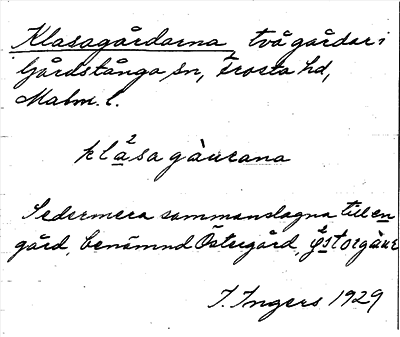 Klasagårdarna två gårdar i
Gårdstånga sn, Frosta hd,
Malm. l.
klåsa gàurana
Sedermera sammanslagna till en
gård, benämnd Östergård,
I. Ingers 1929